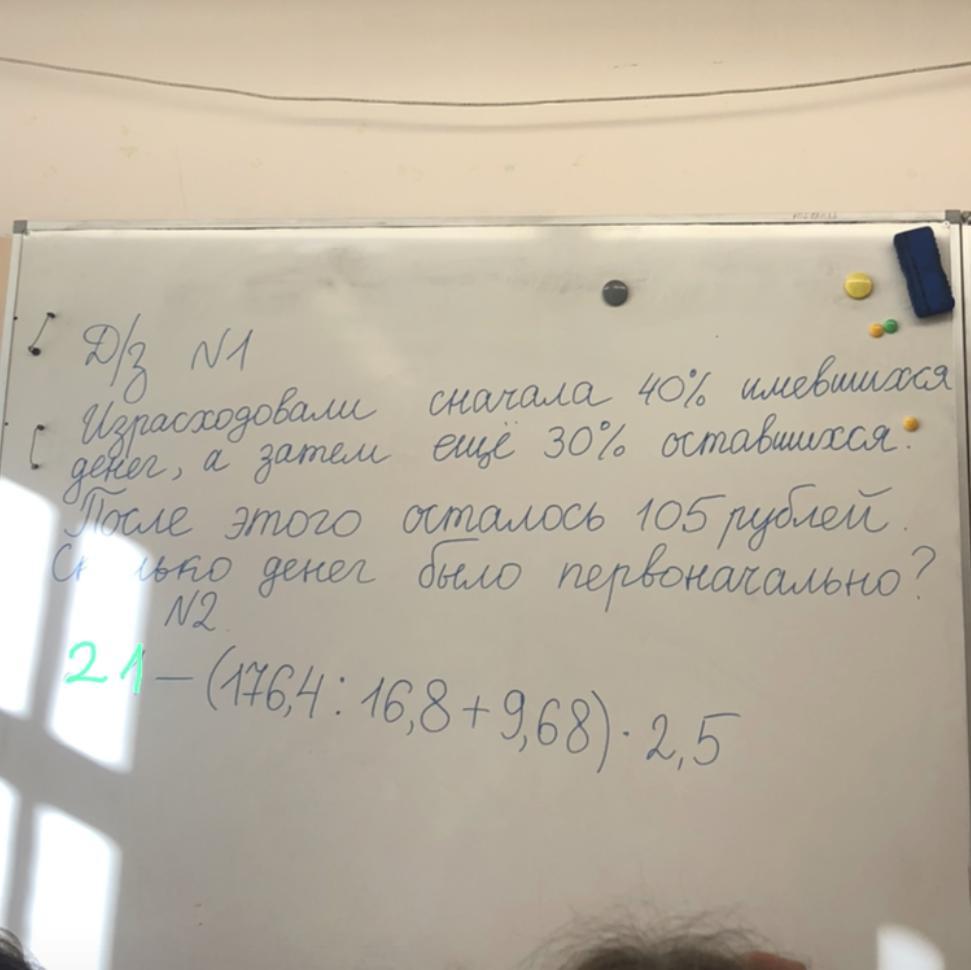 Д/з N1
Израсходовали сначала 40% имевшихся
денег, а затем ещё 30% оставшихся.
После этого осталось 105 рублей.
Сколько денег было первоначально?
N2.
21 – (176,4 : 16,8 + 9,68) · 2,5